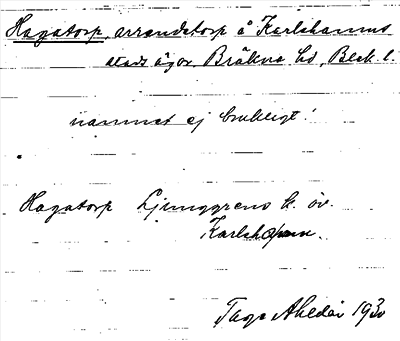 Hagatorp, arrendetorp å Karlshamns
stads ägor, Bräkne hd, Blek. l.
namnet ej brukligt!
Hagatorp Ljunggrens k. öv.
Karlshamn.
Tage Ahldén 1930